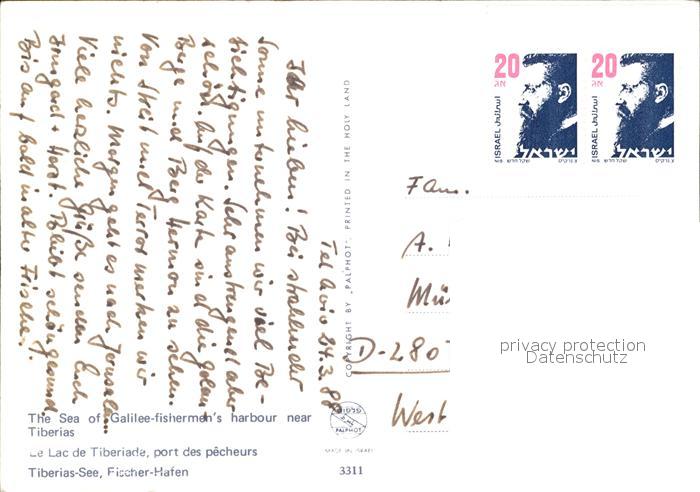 Tel Aviv 24.3.88
Ihr Lieben! Bei strahlender
Sonne unternehmen wir viel Be-
sichtigungen. Sehr anstrengend aber
schön. Auf der Karte sind die Golan-
Berge und Berg Hermon zu sehen.
Von Streit und Terror merken wir
nichts. Morgen geht es nach Jerusalem.
Viele herzliche Grüße senden Euch
Irmgard + Horst. Bleibt schön gesund.
Bis auf bald in alter Frische!
The Sea of Galilee-fishermen's harbour near
Tiberias
Le Lac de Tiberiade, port des pêcheurs
Tiberias-See, Fischer-Hafen
COPYRIGHT BY „PALPHOT", PRINTED IN THE HOLY LAND
פלפוט
PALPHOT
MADE IN ISRAEL
3311
20
אג
ISRAEL اسرائيل
ישראל
שקל חדש
20
אג
ISRAEL اسرائيل
ישראל
שקל חדש
Fam.
A.
Mü
D-280
West
privacy protection
Datenschutz